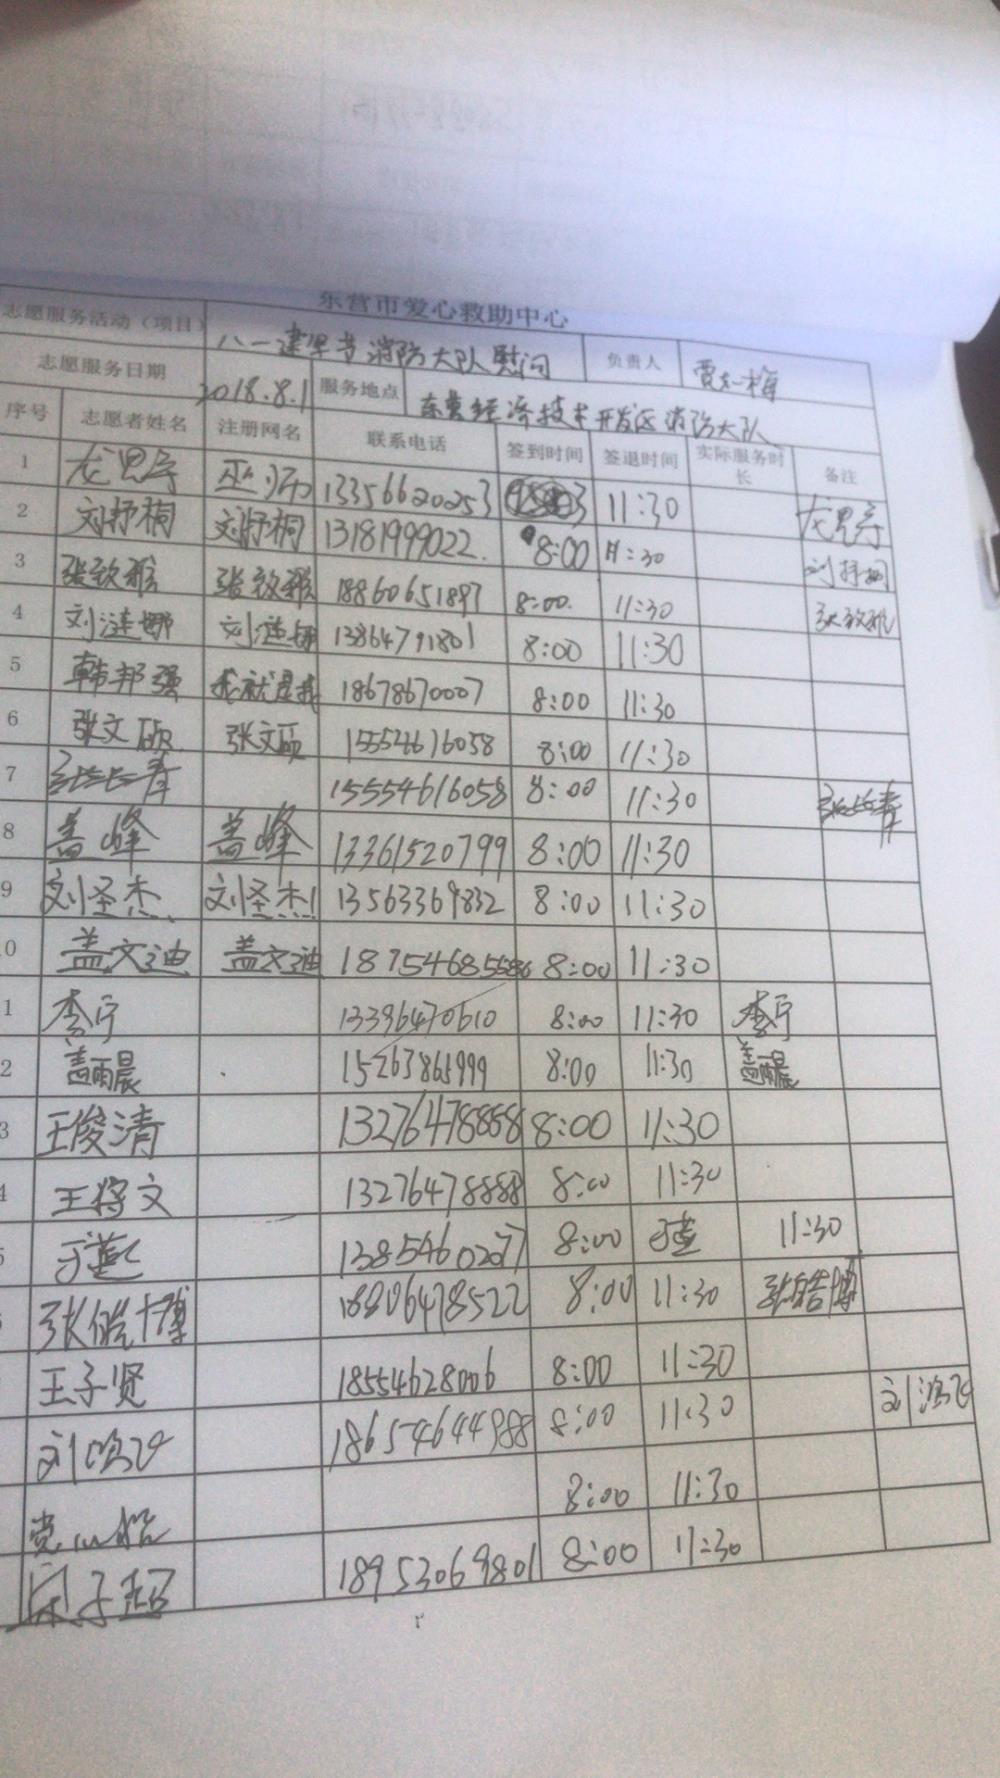 东营市爱心救助中心
志愿服务活动（项目） 八一建军节消防大队慰问 负责人
志愿服务日期 2018.8.1 服务地点 东营经济技术开发区消防大队
序号 志愿者姓名 注册网名 联系电话 签到时间 签退时间 实际服务时长 备注
1 13356620253 11:30
2 刘抒桐 刘抒桐 13181999022. 8:00 11:30 刘抒桐
3 18860651897 8:00. 11:30
4 刘涟娜 刘涟娜 13864791801 8:00 11:30
5 韩邦强 我就是我 18678670007 8:00 11:30
6 张文硕 张文硕 15554616058 8:00 11:30
7 张长青 15554616058 8:00 11:30 张长青
8 盖峰 盖峰 13361520799 8:00 11:30
9 刘圣杰 刘圣杰 13563369832 8:00 11:30
0 盖文迪 盖文迪 8:00 11:30
1 李宁 13396470610 8:00 11:30 李宁
2 盖雨晨 15263865999 8:00 11:30 盖雨晨
3 王俊清 13276478858 8:00 11:30
4 王将文 13276478888 8:00 11:30
5 13854602077 8:00 11:30
张皓博 18806478522 8:00 11:30 张皓博
王子贤 18554628006 8:00 11:30
刘鸿飞 18654644988 8:00 11:30 刘鸿飞
8:00 11:30
宋子超 18953069801 8:00 11:30